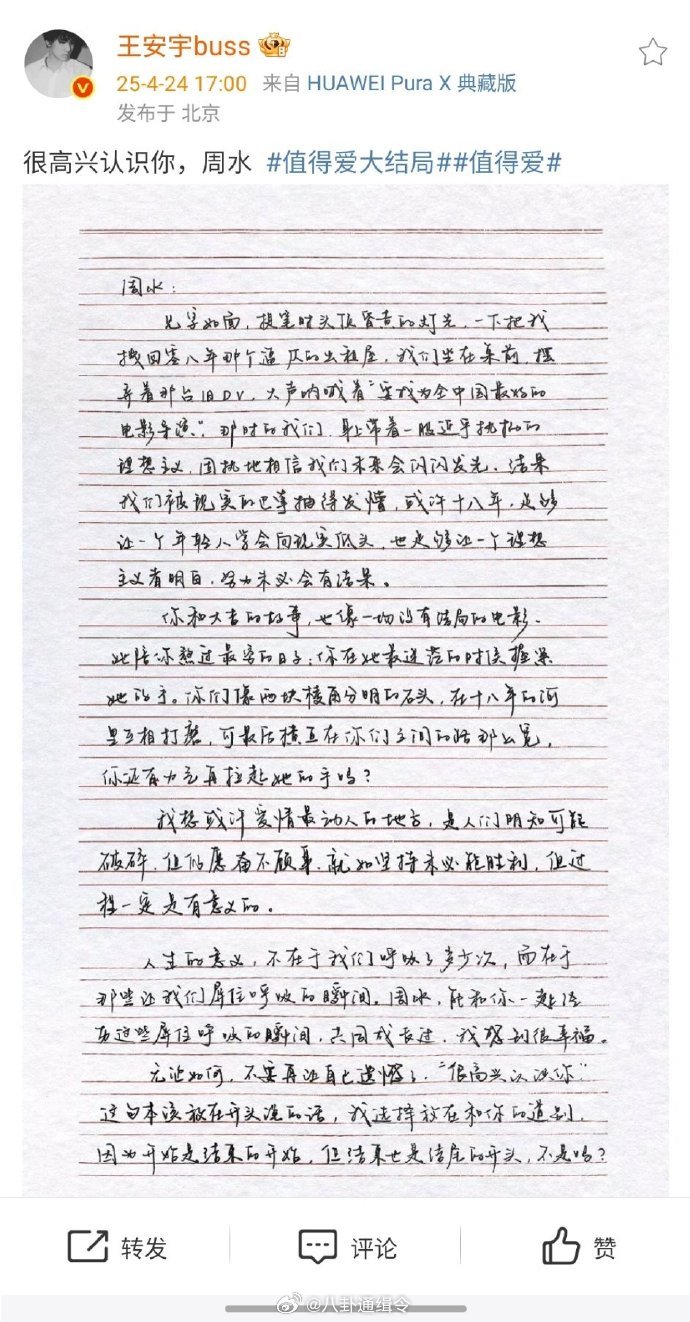 王安宇buss
25-4-24 17:00 来自 HUAWEI Pura X 典藏版
发布于 北京
很高兴认识你，周水 #值得爱大结局##值得爱#
周水：
见字如面，提笔时头顶昏黄的灯光，一下把我
拽回零八年那个逼仄的出租屋，我们坐在桌前，摆
弄着那台旧DV，大声呐喊着“要成为全中国最好的
电影导演”，那时的我们，身上带着一股近乎执拗的
理想主义，固执地相信我们未来会闪闪发光。结果
我们被现实的巴掌抽得发懵，或许十八年，足够
让一个年轻人学会向现实低头，也足够让一个理想
主义者明白，努力未必会有结果。
你和大吉的故事，也像一场没有结局的电影。
她陪你熬过最穷的日子，你在她最迷茫的时候握紧
她的手。你们像两块棱角分明的石头，在十八年的河
里互相打磨，可最后横亘在你们之间的路那么宽，
你还有力气再拉起她的手吗？
我想或许爱情最动人的地方，是人们明知可能
破碎，但仍愿奋不顾身，就如坚持未必能胜利，但过
程一定是有意义的。
人生的意义，不在于我们呼吸了多少次，而在于
那些让我们屏住呼吸的瞬间。周水，能和你一起经
历这些屏住呼吸的瞬间，共同成长过，我感到很幸福。
无论如何，不要再让自己遗憾了，“很高兴认识你”
这句本该放在开头说的话，我选择放在和你的道别，
因为开始是结束的开始，但结束也是结尾的开头，不是吗？
转发 评论 赞
@八卦通缉令